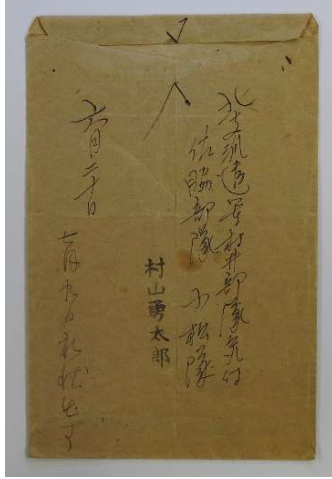 北支派遣軍村井部隊気付
佐脇部隊 小松隊
村山勇太郎
六月二十日
七月九日